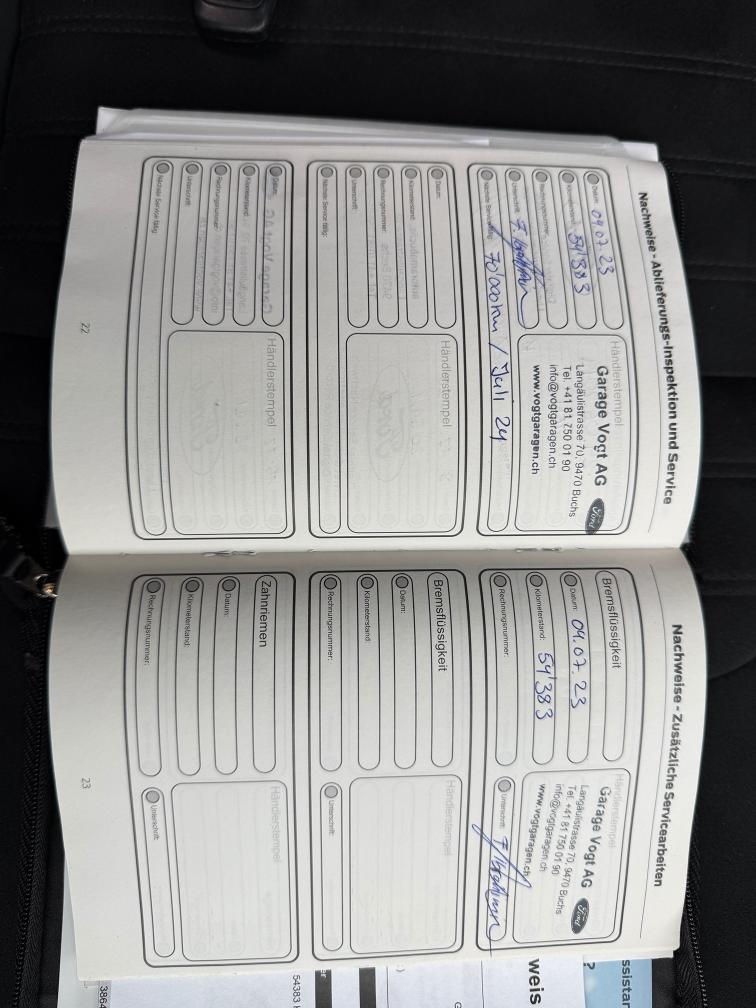 Nachweise - Ablieferungs-Inspektion und Service
Datum: 04.07.23
Kilometerstand: 54'383
Rechnungsnummer:
Unterschrift:
Nächste Service fällig: 70'000km / Juli 24
Händlerstempel
Garage Vogt AG
Ford
Langäulistrasse 70, 9470 Buchs
Tel. +41 81 750 01 90
info@vogtgaragen.ch
www.vogtgaragen.ch
Datum:
Kilometerstand:
Rechnungsnummer:
Unterschrift:
Nächste Service fällig:
Händlerstempel
Datum:
Kilometerstand:
Rechnungsnummer:
Unterschrift:
Nächste Service fällig:
Händlerstempel
22
Nachweise - Zusätzliche Servicearbeiten
Bremsflüssigkeit
Datum: 04.07.23
Kilometerstand: 54'383
Rechnungsnummer:
Händlerstempel
Garage Vogt AG
Ford
Langäulistrasse 70, 9470 Buchs
Tel. +41 81 750 01 90
info@vogtgaragen.ch
www.vogtgaragen.ch
Unterschrift:
Bremsflüssigkeit
Datum:
Kilometerstand:
Rechnungsnummer:
Händlerstempel
Unterschrift:
Zahnriemen
Datum:
Kilometerstand:
Rechnungsnummer:
Händlerstempel
Unterschrift:
23
ssistan
?
weis
54383
3864